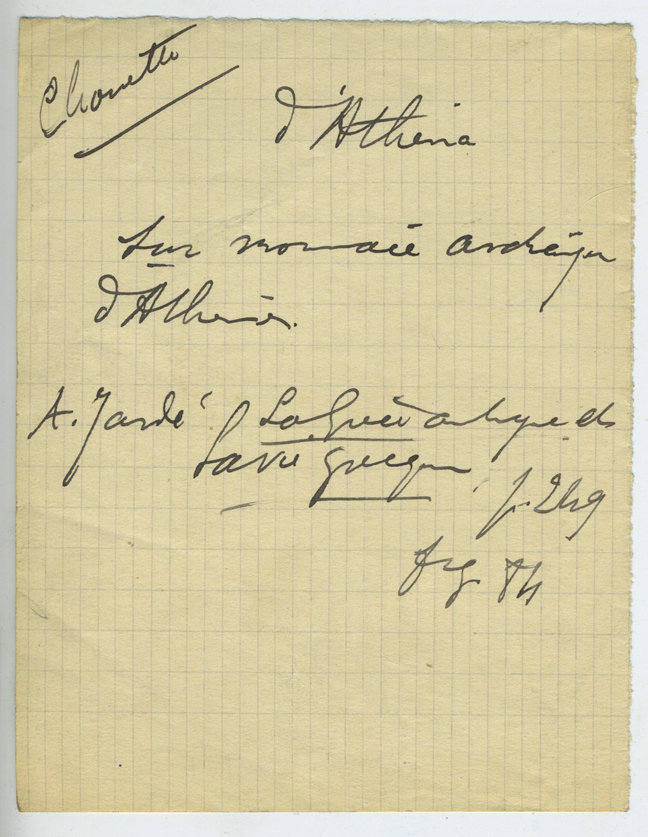 Chouette
d'Athéna
sur monnaie archaïque
d'Athènes.
A. Jardé La Grèce antique et
la vie grecque
p. 249
fig 84